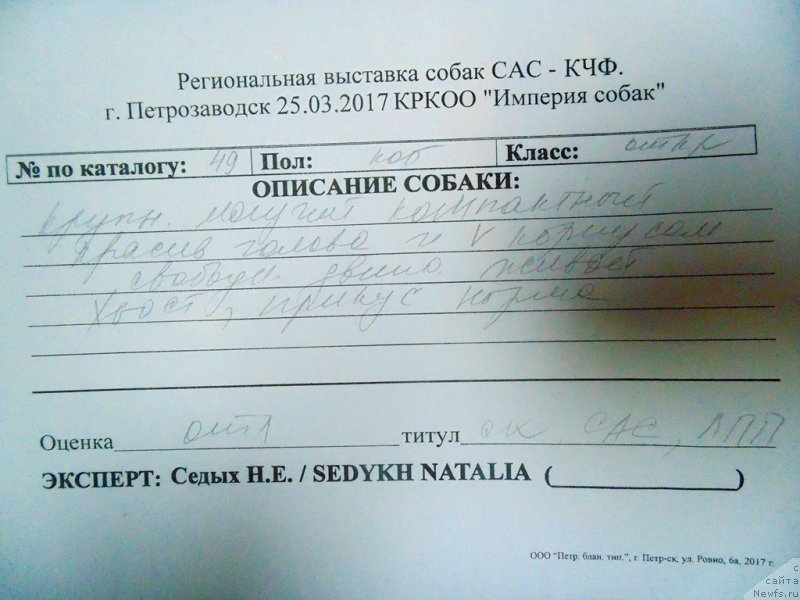 Региональная выставка собак САС - КЧФ.
г. Петрозаводск 25.03.2017 КРКОО "Империя собак"
№ по каталогу: 49 Пол: коб Класс: откр
ОПИСАНИЕ СОБАКИ:
крупн. могучий компактный
красив голова и корпусом
свободн. движ. живой
хвост, прикус норма
Оценка отл титул САС, ЛПП
ЭКСПЕРТ: Седых Н.Е. / SEDYKH NATALIA (                    )
ООО "Петр. блан. тип.", г. Петр-ск, ул. Ровио, 6а, 2017 г.
с
сайта
Newfs.ru